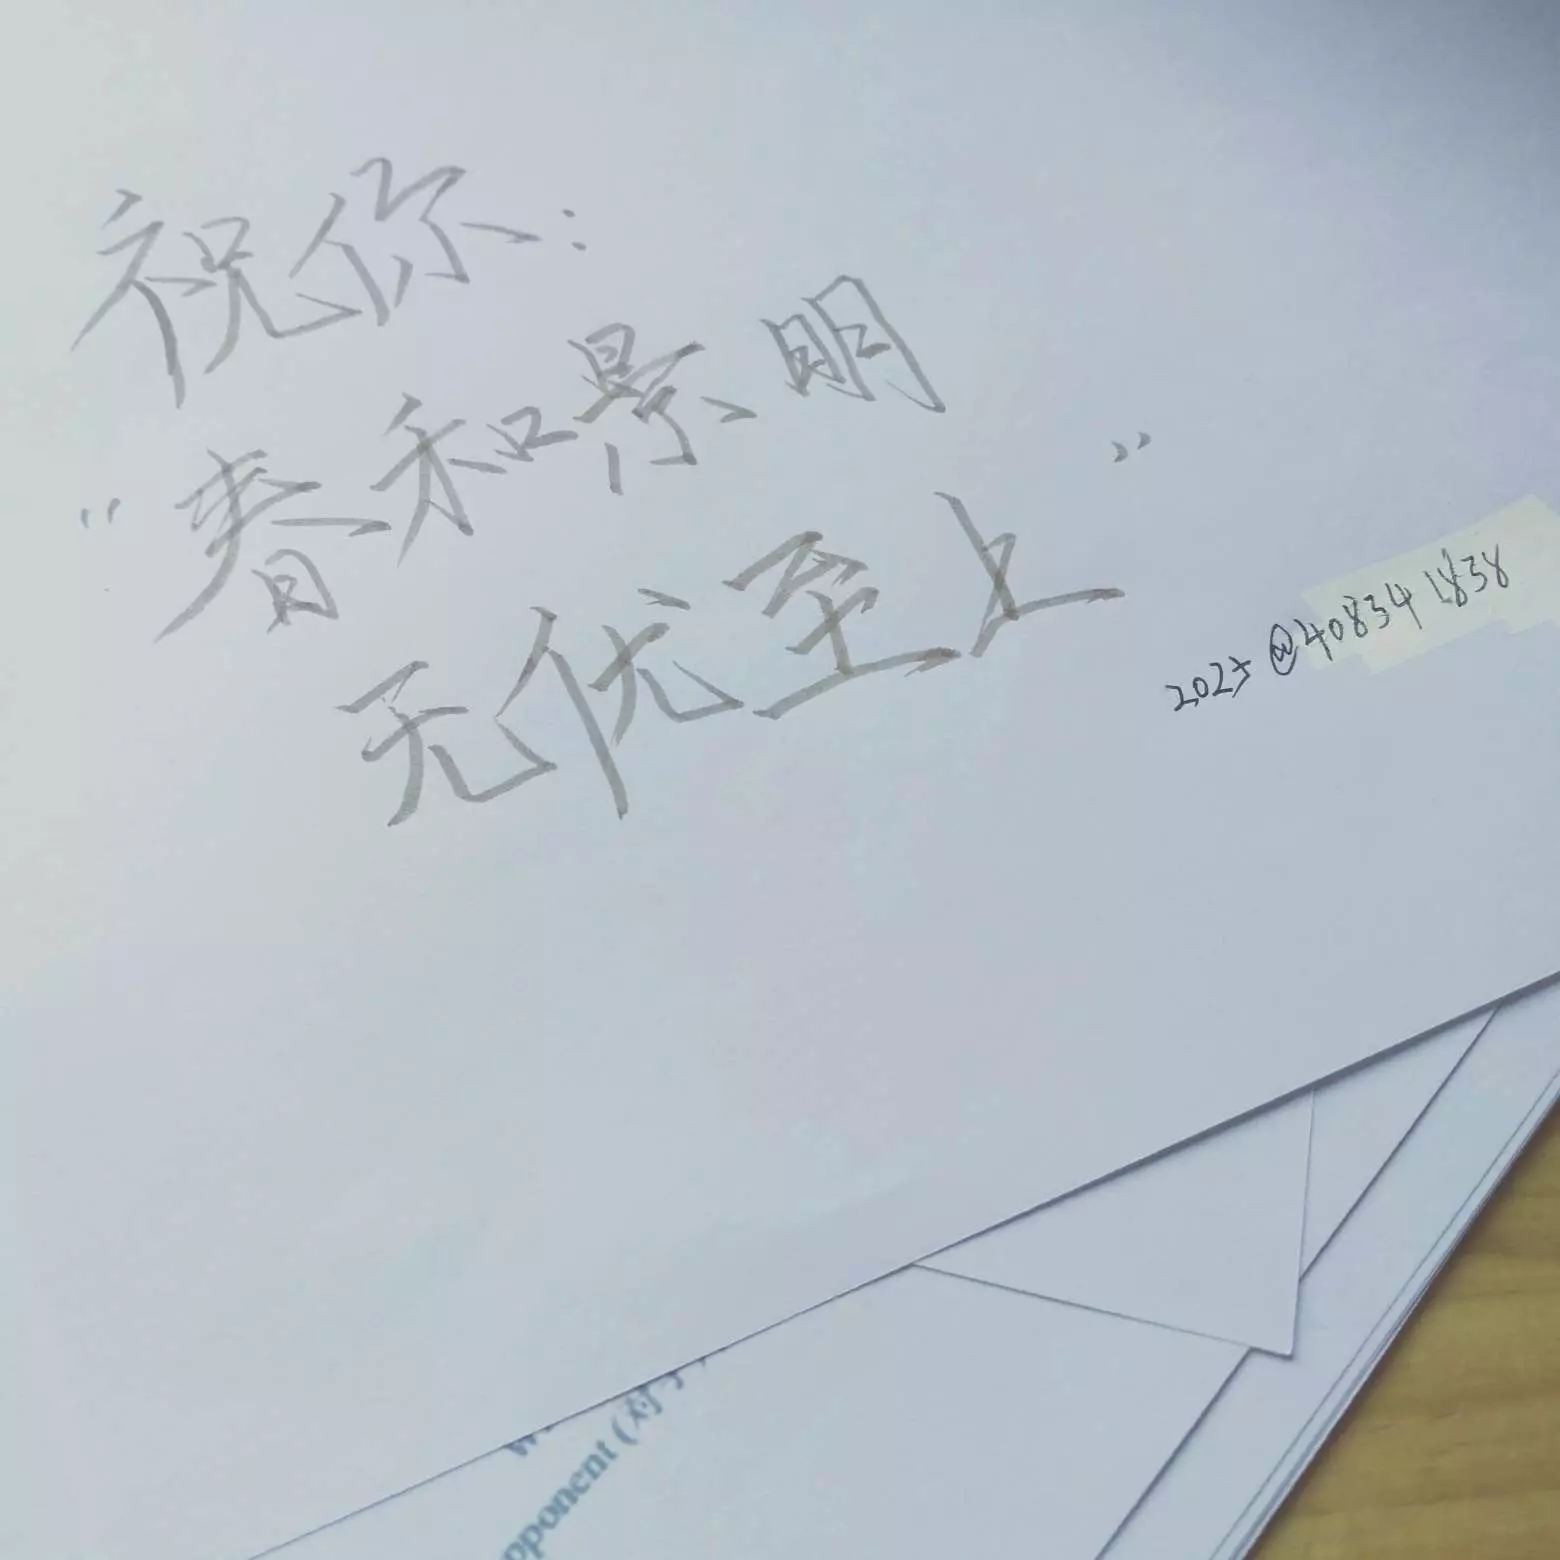 祝你：
“春和景明
无优至上”
2023 @408341838
pponent (对手